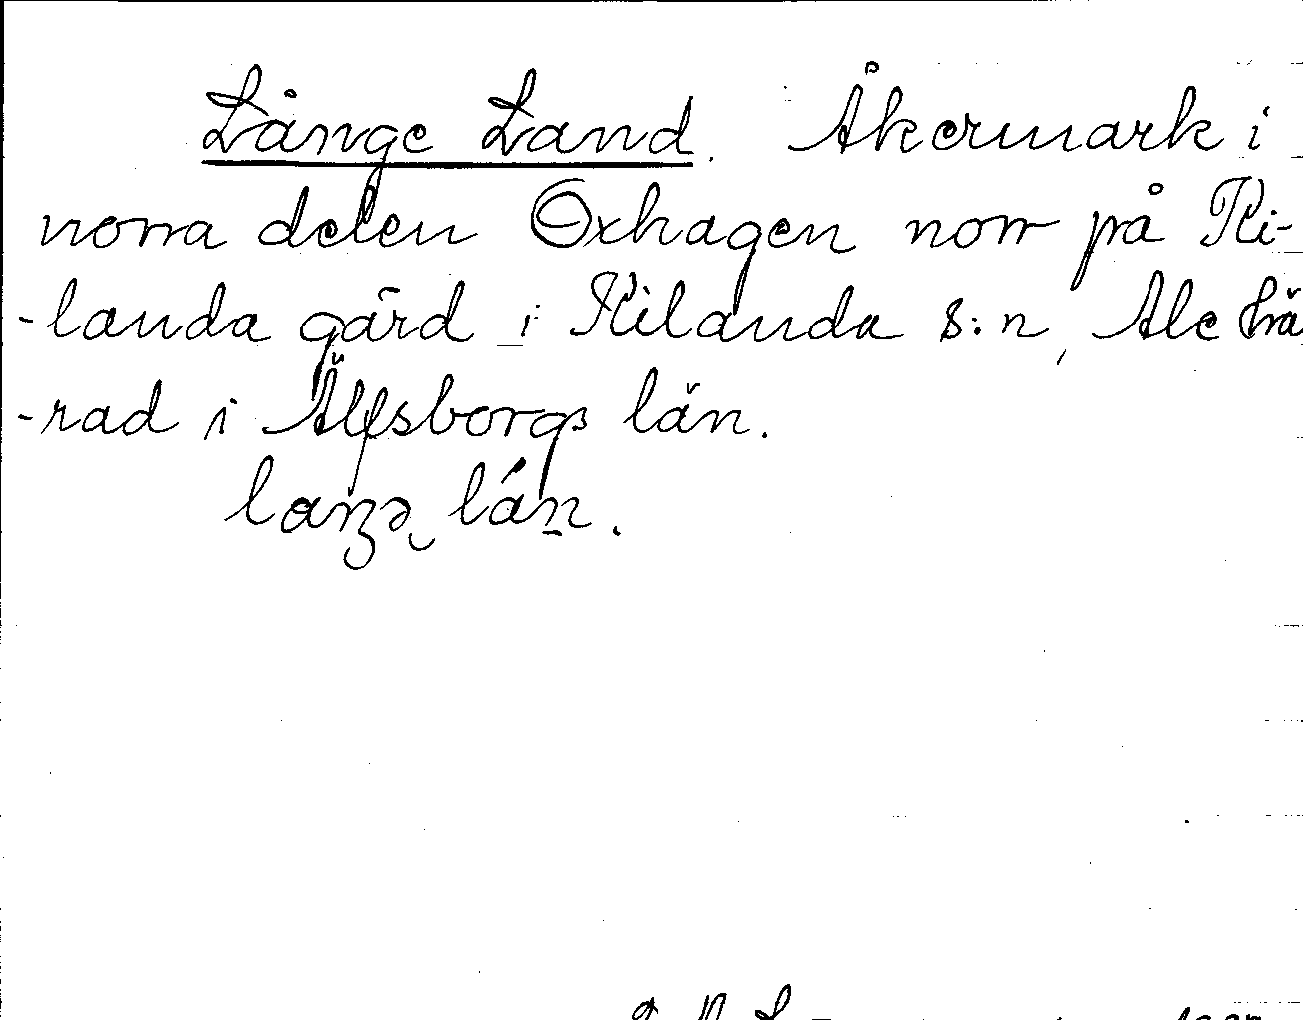 Långe Land. Åkermark i
norra delen Oxhagen norr på Ki-
-landa gård i Kilanda s:n, Ale hä
-rad i Älfsborgs län.